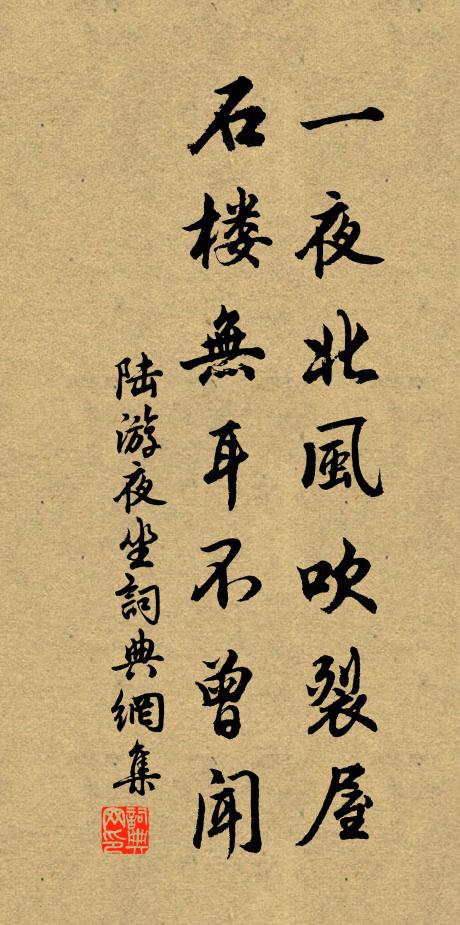 一夜北風吹裂屋
石楼無耳不曾聞
陆游夜坐詞典網集
詞典網印